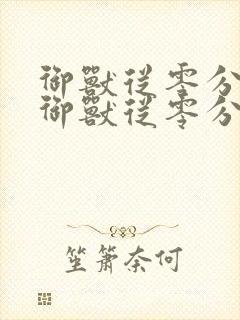 御獸從零分
御獸從零分
笙簫奈何